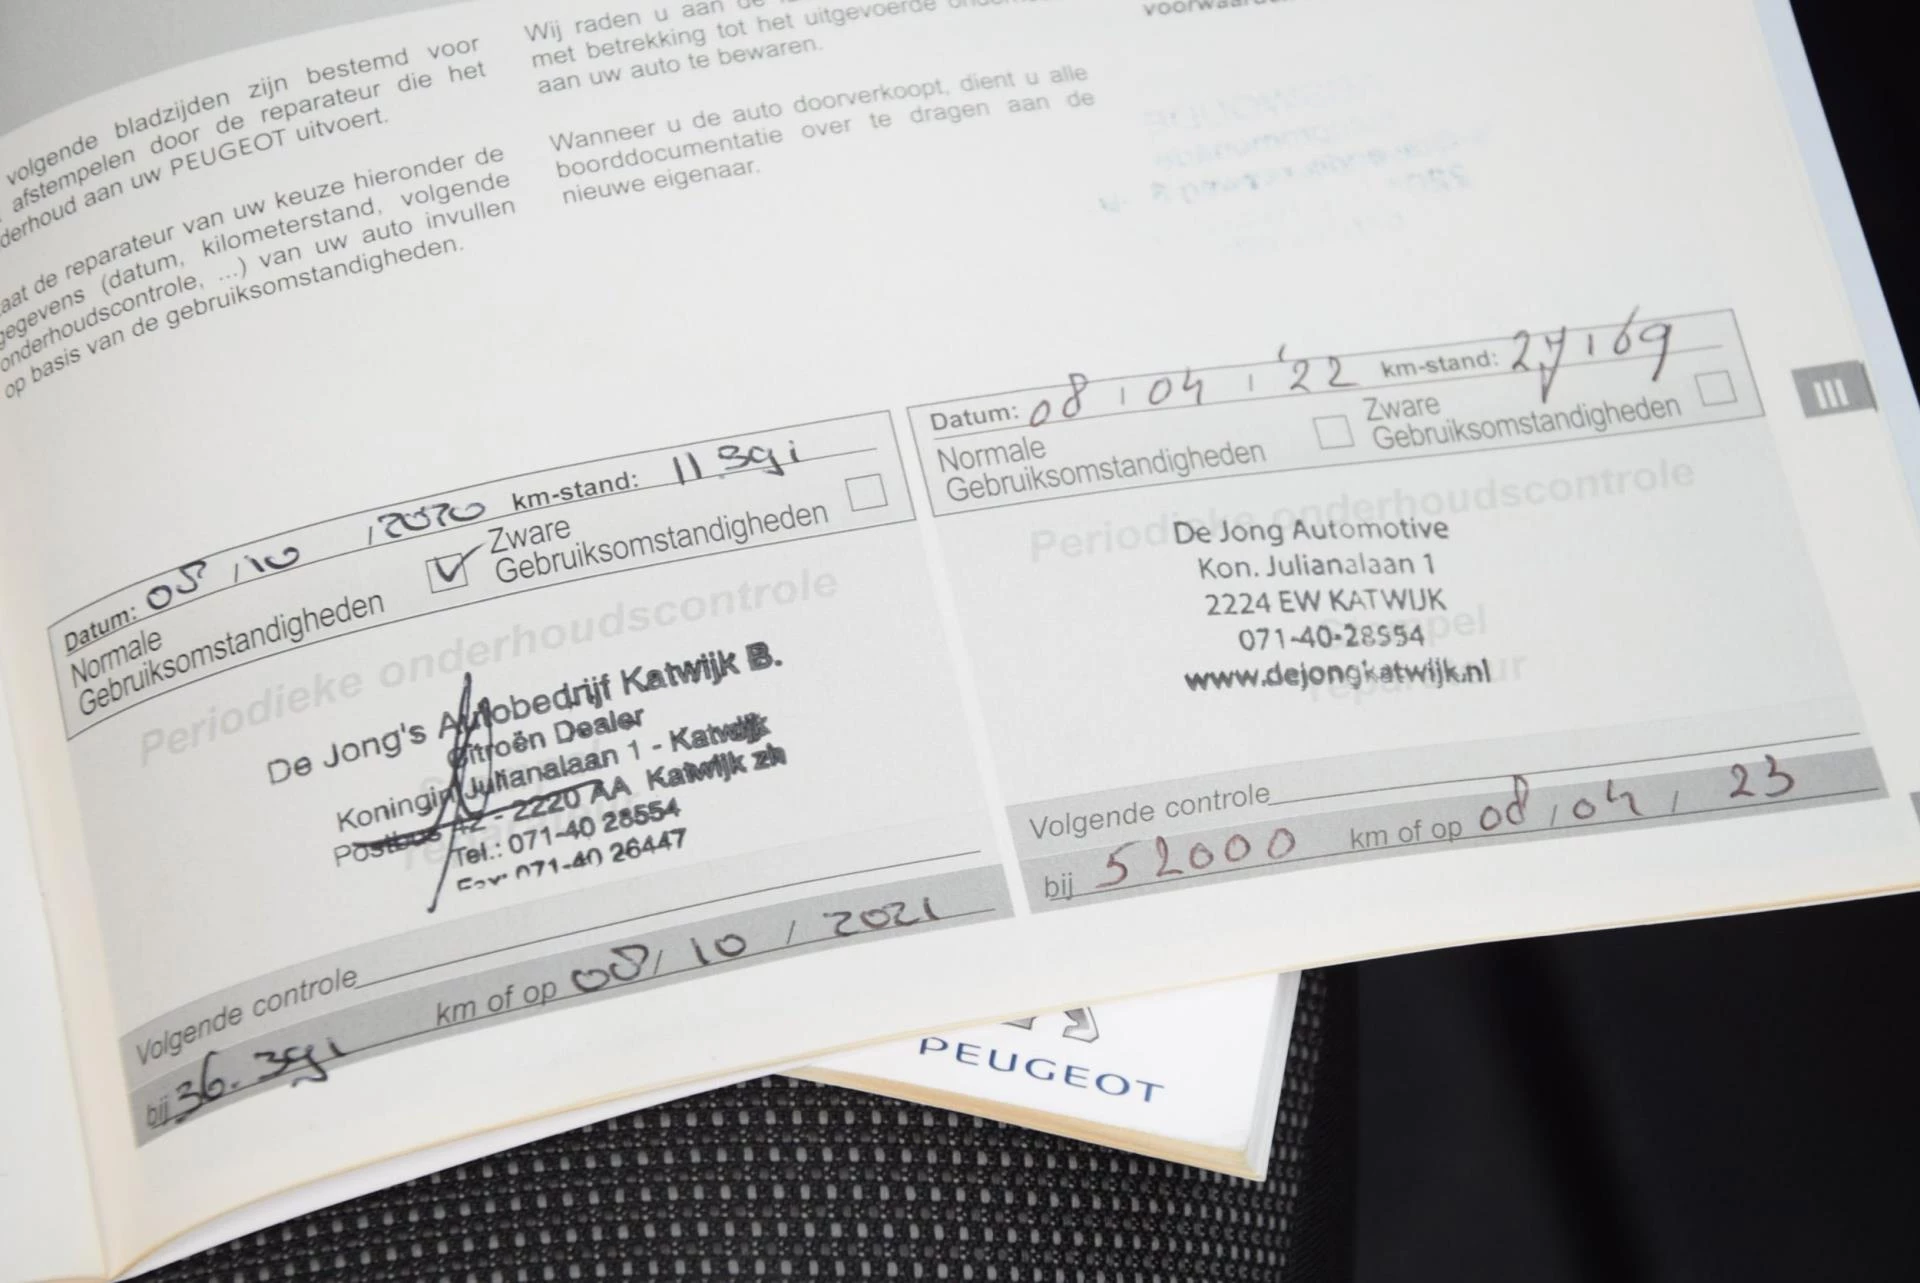 volgende bladzijden zijn bestemd voor
afstempelen door de reparateur die het
derhoud aan uw PEUGEOT uitvoert.
aat de reparateur van uw keuze hieronder de
gegevens (datum, kilometerstand, volgende
onderhoudscontrole, ...) van uw auto invullen
op basis van de gebruiksomstandigheden.
Wij raden u aan de
met betrekking tot het uitgevoerde
aan uw auto te bewaren.
Wanneer u de auto doorverkoopt, dient u alle
boorddocumentatie over te dragen aan de
nieuwe eigenaar.
Datum: 08 / 10 / 2020 km-stand: 11.391
Normale
Gebruiksomstandigheden
Zware
Gebruiksomstandigheden
Periodieke onderhoudscontrole
De Jong's Autobedrijf Katwijk B.
Citroën Dealer
Koningin Julianalaan 1 - Katwijk
Postbus 42 - 2220 AA Katwijk zh
Tel.: 071-40 28554
Fax: 071-40 26447
Volgende controle
bij 36.391 km of op 08 / 10 / 2021
Datum: 08 / 04 / '22 km-stand: 27169
Normale
Gebruiksomstandigheden
Zware
Gebruiksomstandigheden
Periodieke onderhoudscontrole
De Jong Automotive
Kon. Julianalaan 1
2224 EW KATWIJK
071-40-28554
www.dejongkatwijk.nl
Stempel
reparateur
Volgende controle
bij 52000 km of op 08 / 04 / 23
III
PEUGEOT